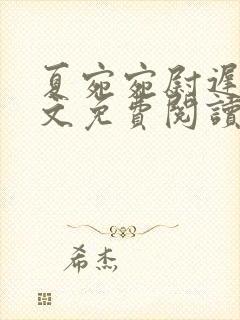 夏宛宛尉遲
文免費閱讀
希杰